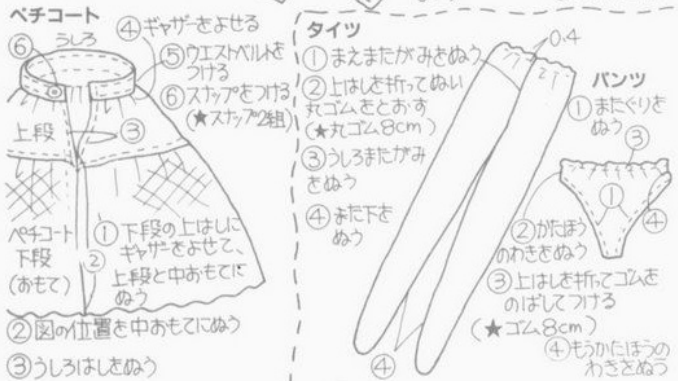 ペチコート
うしろ
④ギャザーをよせる
⑤ウエストベルトを
つける
⑥スナップをつける
(★スナップ2組)
⑥
上段
③
ペチコート
下段
(おもて)
①下段の上はしに
ギャザーをよせて、
上段と中おもてに
ぬう
②
②図の位置を中おもてにぬう
③うしろはしをぬう
タイツ
①まえまたがみをぬう
②上はしを折ってぬい
丸ゴムをとおす
(★丸ゴム8cm)
③うしろまたがみ
をぬう
④また下を
ぬう
0.4
④
パンツ
①またぐりを
ぬう
③
①
④
②かたほう
のわきをぬう
③上はしを折ってゴムを
のばしてつける
(★ゴム8cm)
④もうかたほうの
わきをぬう